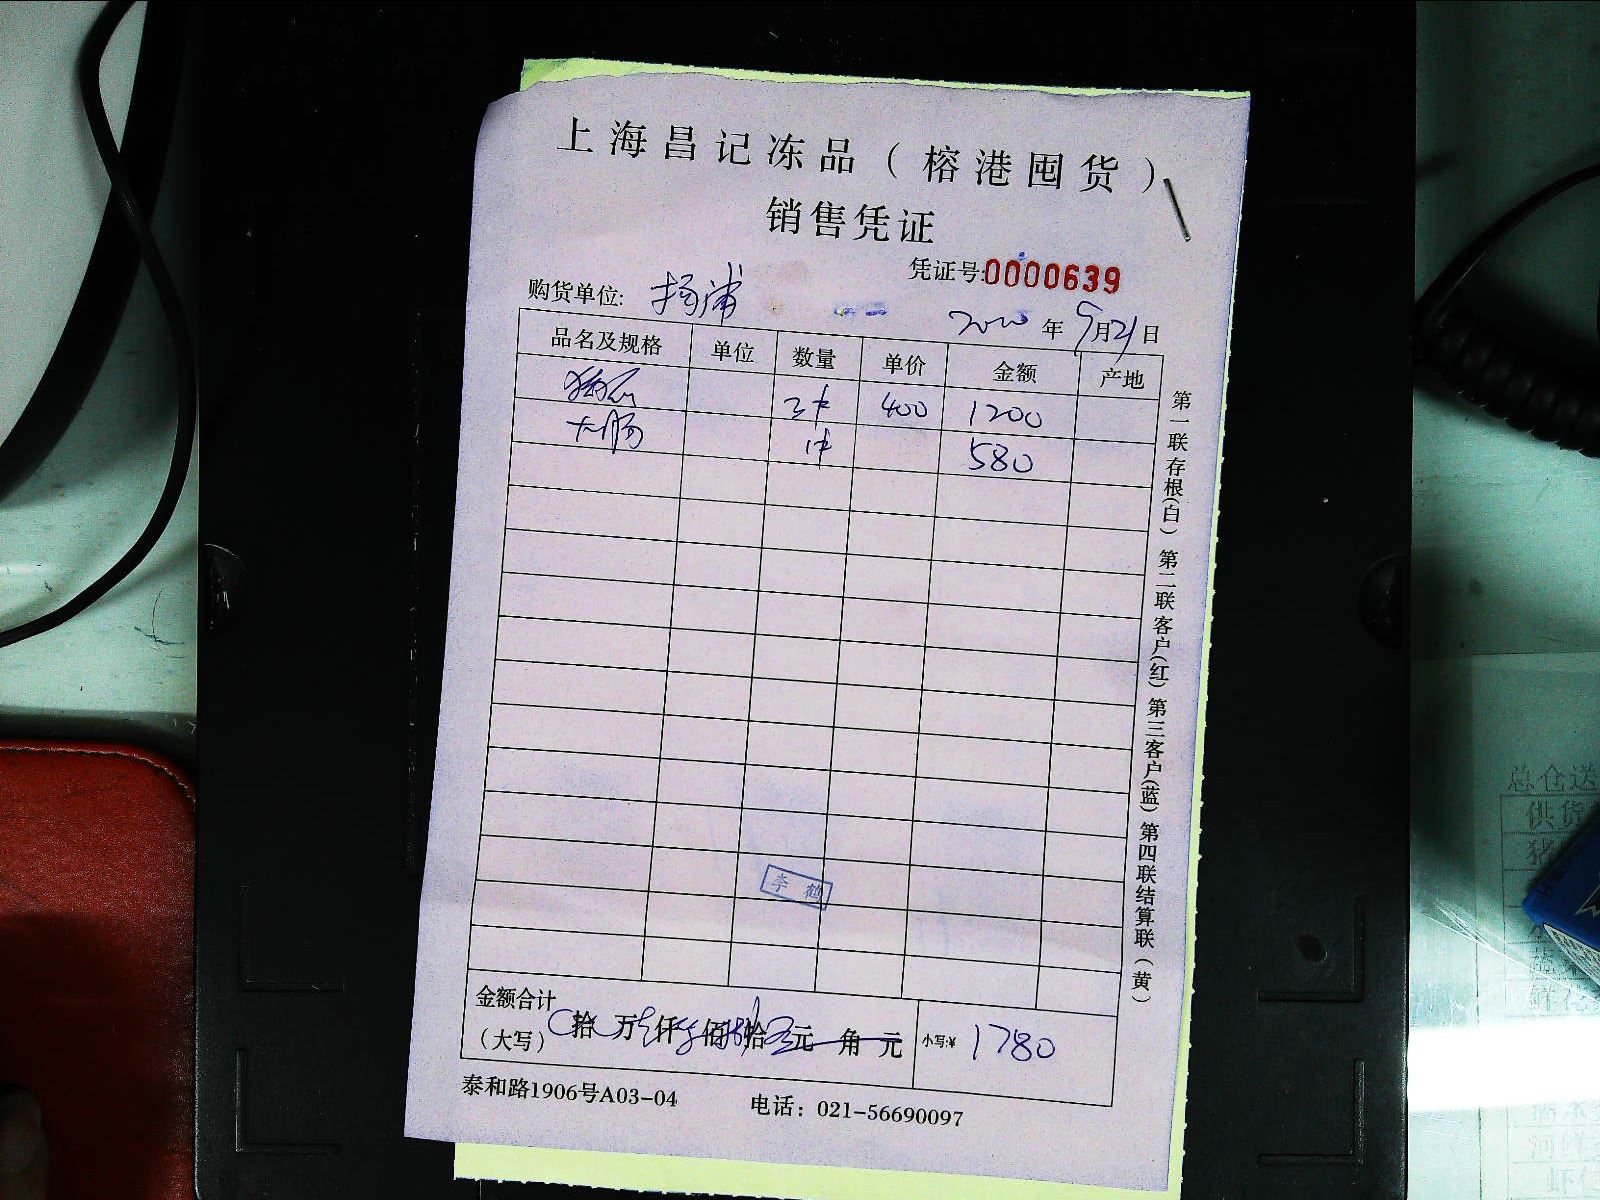 上海昌记冻品（榕港囤货）
销售凭证
凭证号:0000639
购货单位: 杨浦
2020年9月21日
品名及规格 单位 数量 单价 金额 产地
3件 400 1200
大肠 1件 580
李鹤
金额合计（大写） 拾 万 仟 佰 拾 元 角 元 小写:¥ 1780
泰和路1906号A03-04 电话：021-56690097
第一联存根(白) 第二联客户(红) 第三客户(蓝) 第四联结算联(黄)
总仓送
供货